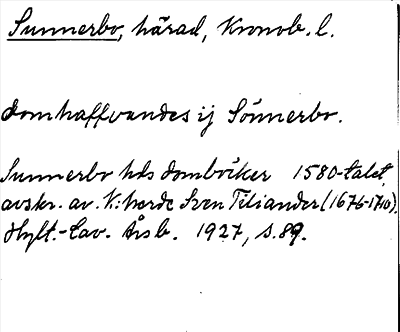 Sunnerbo, härad, Kronob. l.
domhaffvandes ij Sönnerbo.
Sunnerbo hds domböker 1580-talet,
avskr. av K:herde Sven Tiliander (1676-1710).
Hylt.-Cav. Årsb. 1927, s. 89.